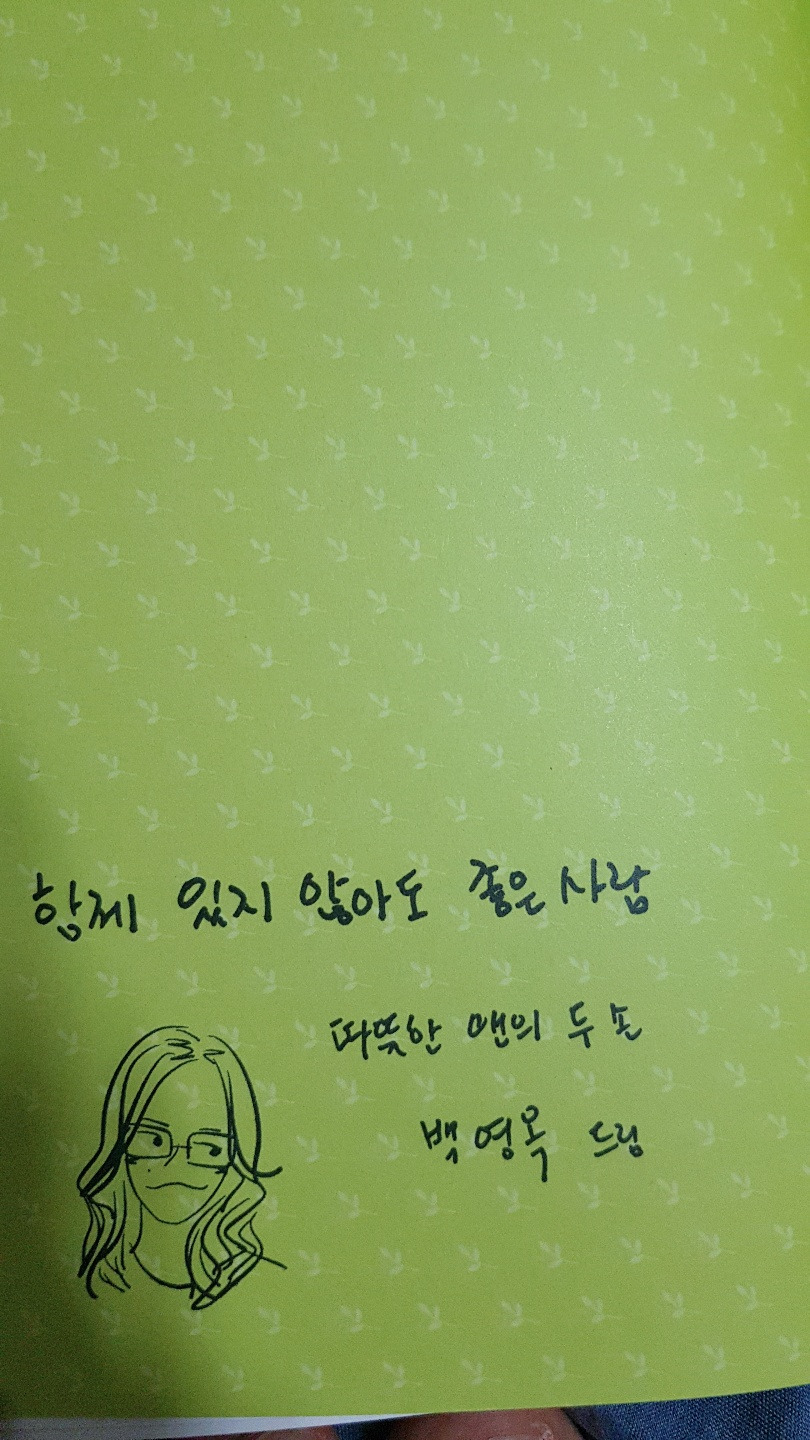 함께 있지 않아도 좋은 사람
따뜻한 앤의 두 손
백영옥 드림